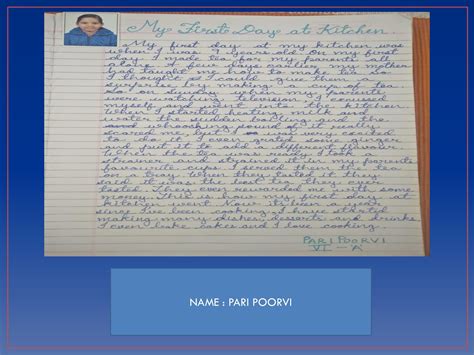 My First Day at Kitchen.
My first day at my kitchen was
when I was 7 years old. On my first
day I made tea for my parents all
alone. A few days earlier my mother
had taught me how to make tea. So
I thought I would give them a
surprise by making a cup of tea
on Sunday when my parents
were watching television, I excused
myself and went into the kitchen.
When I started heating milk and
water the sudden boiling and the
whooshing sound of it really
scared me, but I was very excited
to do it. I even grated some ginger
and put it to add a different flavour.
When the tea was ready I took a
strainer and strained it in my parents
favourite cups served them the tea
on a tray. When they tasted it they
said it was the best tea they ever
tasted. They even rewarded me with some
money. This is how my first day at
kitchen went. Now its been a year
since I've been cooking. I have started
making many dishes, desserts and drinks.
I even bake cakes and I love cooking.
PARI POORVI
VI - A
NAME : PARI POORVI